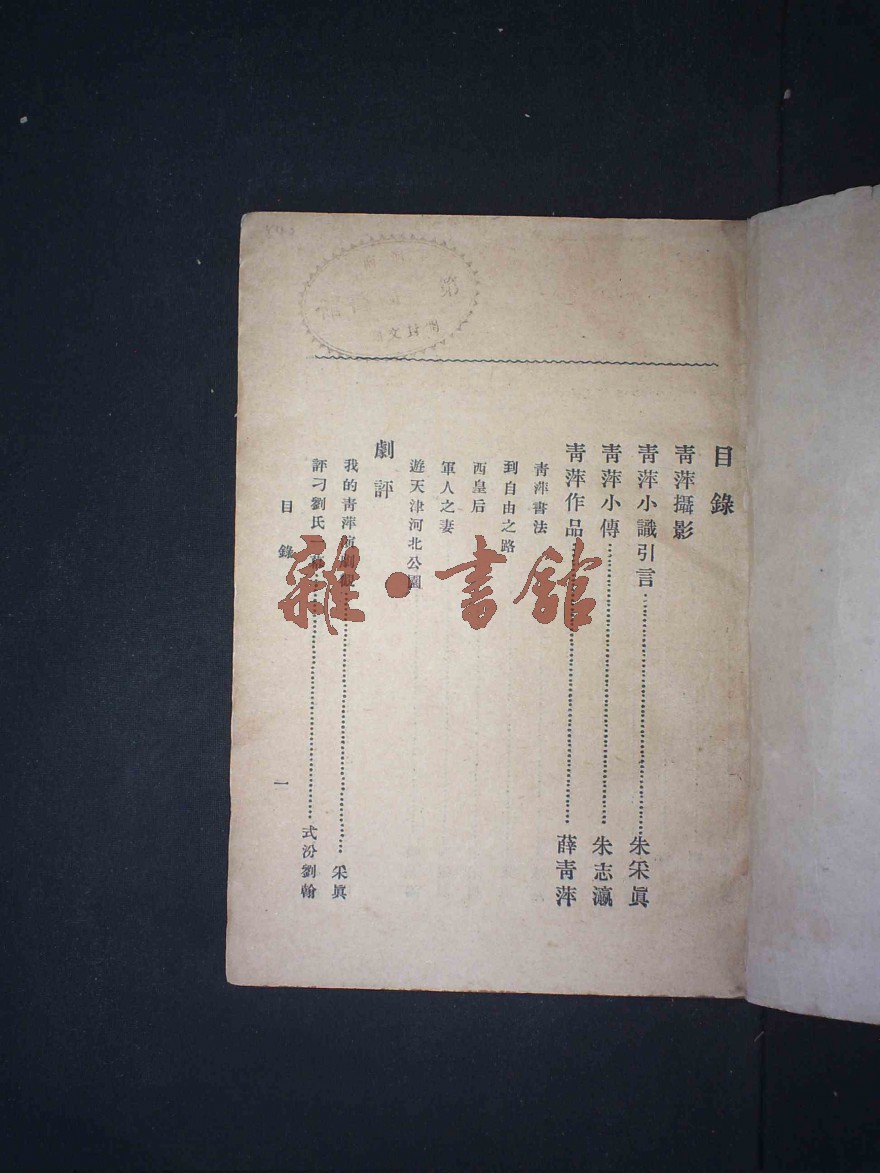 目錄
青萍攝影
青萍小識引言⋯⋯朱采眞
青萍小傳⋯⋯朱志瀛
青萍作品⋯⋯薛青萍
青萍書法
到自由之路
西皇后
軍人之妻
遊天津河北公園
劇評
我的青萍演劇⋯⋯采眞
評刁劉氏一⋯⋯式汾劉翰
目錄
一
雜·書館
第